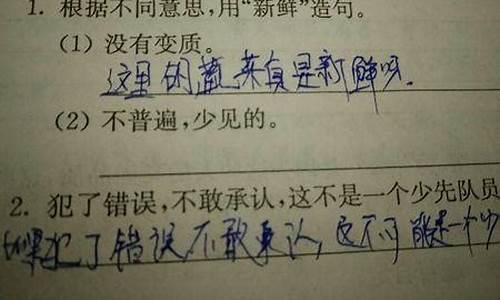 1. 根据不同意思,用“新鲜”造句。
(1) 没有变质。
这里的蔬菜真是新鲜呀。
(2) 不普遍,少见的。
2. 犯了错误,不敢承认,这不是一个少先队员
犯了错误,不敢承认,这不可能是一个少